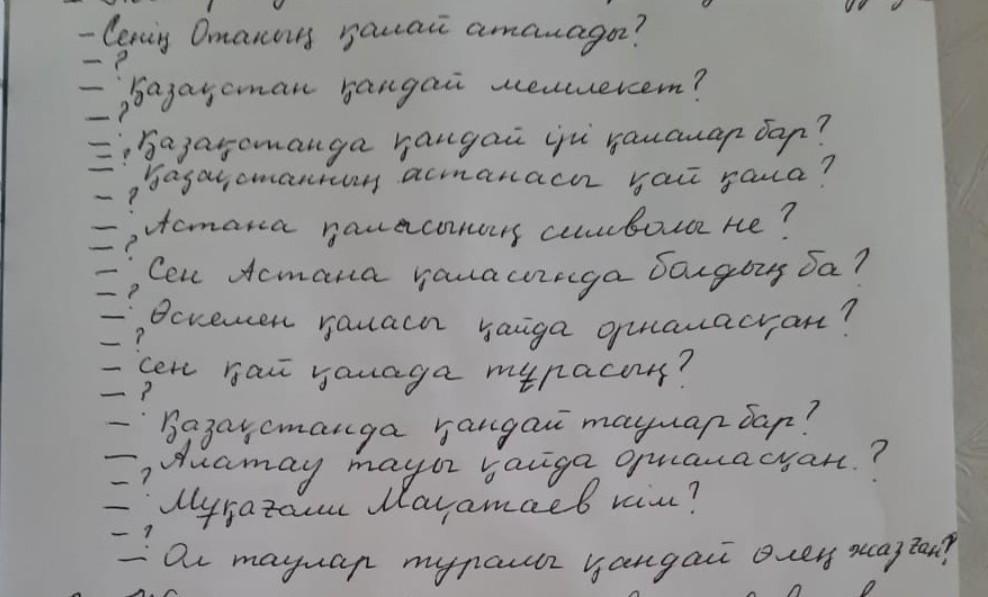 - Сенің Отаның қалай аталады?
- ?
- Қазақстан қандай мемлекет?
- ?
- Қазақстанда қандай ірі қалалар бар?
- ?
- Қазақстанның астанасы қай қала?
- ?
- Астана қаласының символы не?
- ?
- Сен Астана қаласында болдың ба?
- ?
- Өскемен қаласы қайда орналасқан?
- ?
- Сен қай қалада тұрасың?
- ?
- Қазақстанда қандай таулар бар?
- Алатау тауы қайда орналасқан.?
- ?
- Мұқағали Мақатаев кім?
- ?
- Ол таулар туралы қандай өлең жазған?